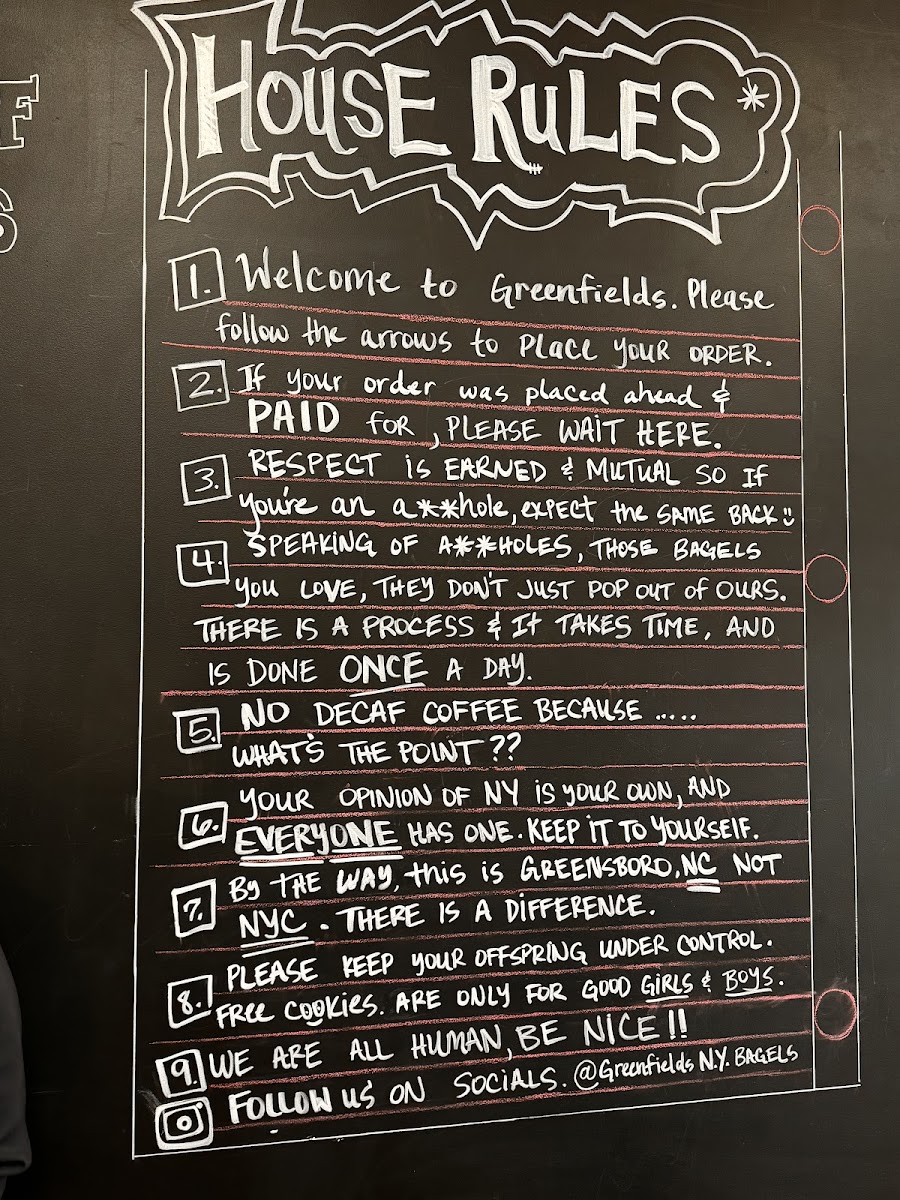 HOUSE RULES *
F
S
1. Welcome to Greenfields. Please
follow the arrows to PLACE YOUR ORDER.
2. If your order was placed ahead &
PAID FOR, PLEASE WAIT HERE.
3. RESPECT is EARNED & MUTUAL SO IF
you're an a**hole, expect the SAME BACK :)
4. SPEAKING OF A**HOLES, THOSE BAGELS
YOU LOVE, THEY DON'T JUST POP OUT OF OURS.
THERE IS A PROCESS & It TAKES TIME, AND
IS DONE ONCE A DAY.
5. NO DECAF COFFEE BECAUSE .....
WHAT'S THE POINT??
6. YOUR OPINION OF NY IS YOUR OWN, AND
EVERYONE HAS ONE. KEEP IT TO YOURSELF.
7. By THE WAY, this is GREENSBORO, NC NOT
NYC. THERE IS A DIFFERENCE.
8. PLEASE KEEP YOUR OFFSPRING UNDER CONTROL.
FREE COOKIES. ARE ONLY FOR GOOD GIRLS & BOYS.
9. WE ARE ALL HUMAN, BE NICE!!
FOLLOW US ON SOCIALS. @Greenfields N.Y. BAGELS